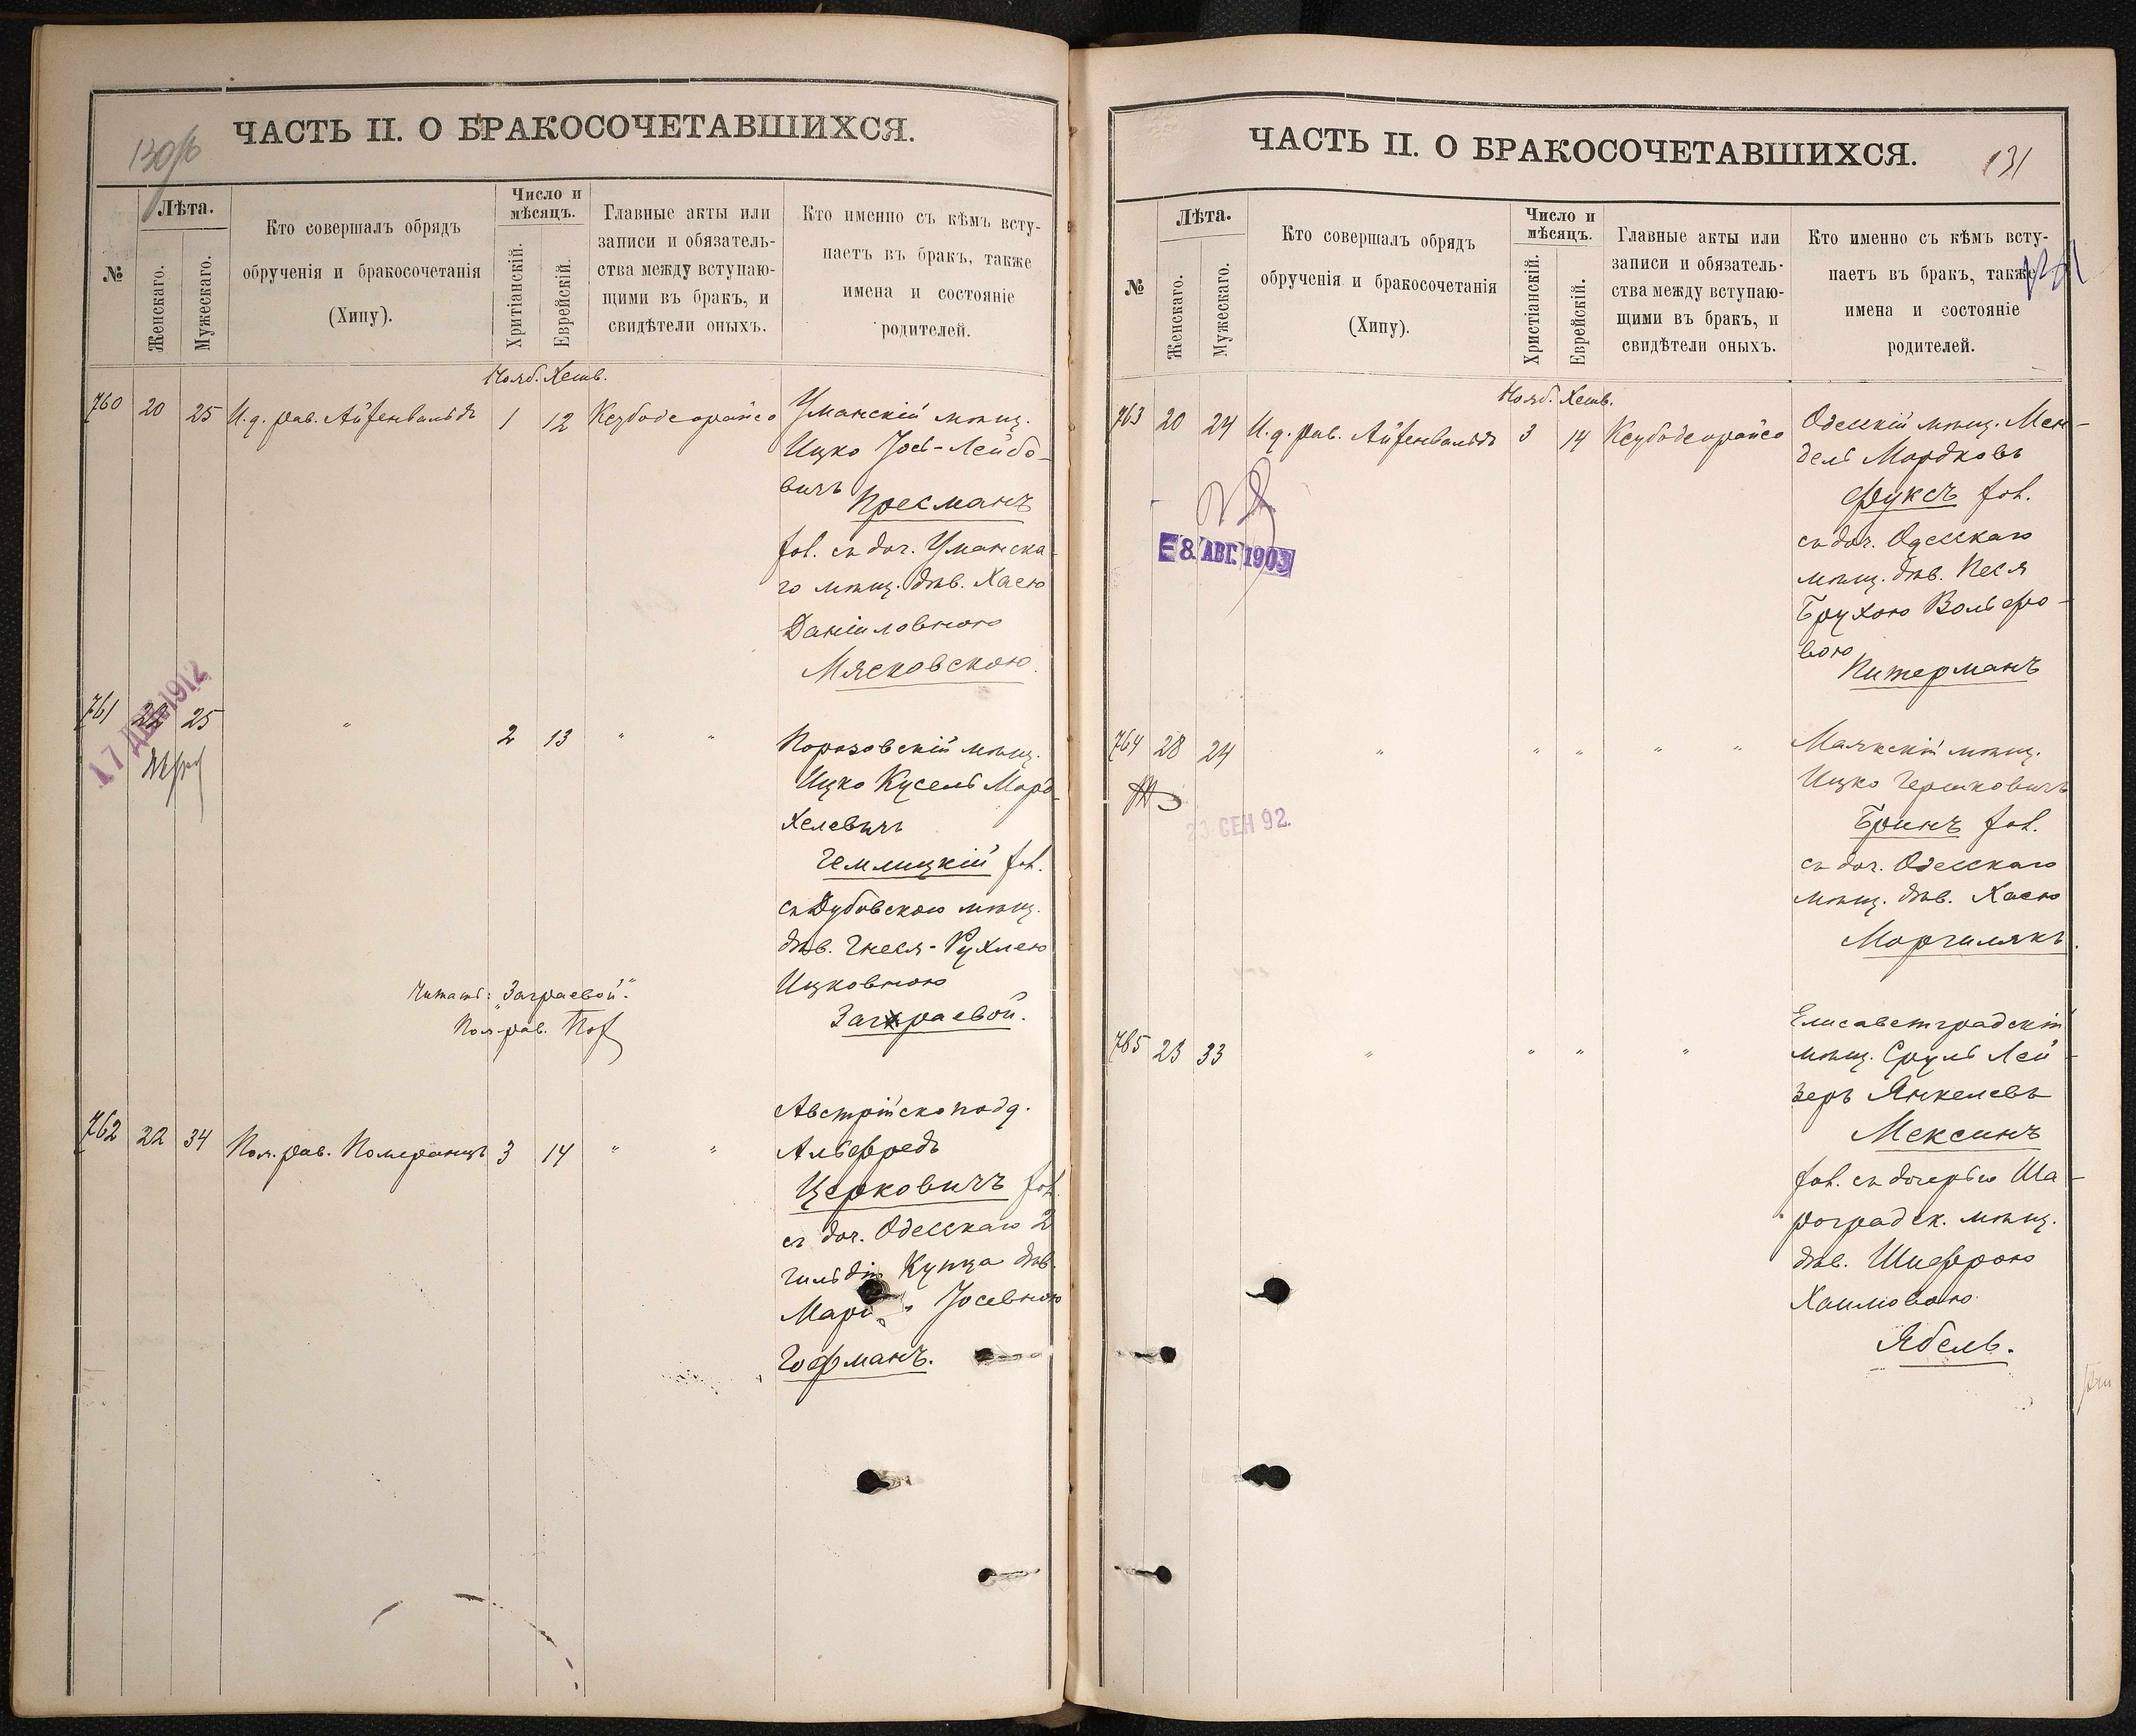 130об
ЧАСТЬ II. О БРАКОСОЧЕТАВШИХСЯ.
№
Лѣта.
Женскаго.
Мужескаго.
Кто совершалъ обрядъ
обрученія и бракосочетанія
(Хипу).
Число и
мѣсяцъ.
Хритіанскій.
Еврейскій.
Главные акты или
записи и обязатель-
ства между вступаю-
щими въ бракъ, и
свидѣтели оныхъ.
Кто именно съ кѣмъ всту-
паетъ въ бракъ, также
имена и состояніе
родителей.
Нояб. Хешв.
760 20 25 И.д. рав. Айзенвальдъ 1 12 Ксубодеорайсо
Уманскій мѣщ.
Ицко Іось-Лейбо-
вичъ
Пресманъ
хол. съ доч. Уманска-
го мѣщ. дѣв. Хасею
Даніиловною
Мясковскою.
17 ДЕК 1912
761 22 25 " 2 13 " "
Порозовскій мѣщ.
Ицко Кусель Мор-
хелевичъ
Гемлицкій хол.
съ Дубовскою мѣщ.
дѣв. Гнеся-Рухлею
Ицковною
Заграевой.
Читать: "Заграевой".
Пом. рав.
762 22 34 Пом. рав. Померанцъ 3 14 " "
Австрійскоподд.
Альфредъ
Церковичъ хол.
съ доч. Одесскаго 2
гильдіи Купца дѣв.
Іосевною
Гофманъ.
ЧАСТЬ II. О БРАКОСОЧЕТАВШИХСЯ.
131
№
Лѣта.
Женскаго.
Мужескаго.
Кто совершалъ обрядъ
обрученія и бракосочетанія
(Хипу).
Число и
мѣсяцъ.
Христіанскій.
Еврейскій.
Главные акты или
записи и обязатель-
ства между вступаю-
щими въ бракъ, и
свидѣтели оныхъ.
Кто именно съ кѣмъ всту-
паетъ въ бракъ, также
имена и состояніе
родителей.
Нояб. Хешв.
763 20 24 И.д. рав. Айзенвальдъ 3 14 Ксубодеорайсо
Одесскій мѣщ. Мен-
дель Мордковъ
Фуксъ хол.
съ доч. Одесскаго
мѣщ. дѣв. Песя
Брухою Вольфо-
вою
Питерманъ
8 АВГ. 1903
764 28 24 " " " " "
Маякскій мѣщ.
Ицко Гершковичъ
Бринъ хол.
съ доч. Одесскаго
мѣщ. дѣв. Хасею
Моргулякъ.
23 СЕН 92.
765 23 33 " " " "
Елисаветградскій
мѣщ. Сруль Лей-
зеръ Янкелевъ
Мексинъ
хол. съ дочерью Ша-
роградск. мѣщ.
дѣв. Шифрою
Хаимовою
Ябель.